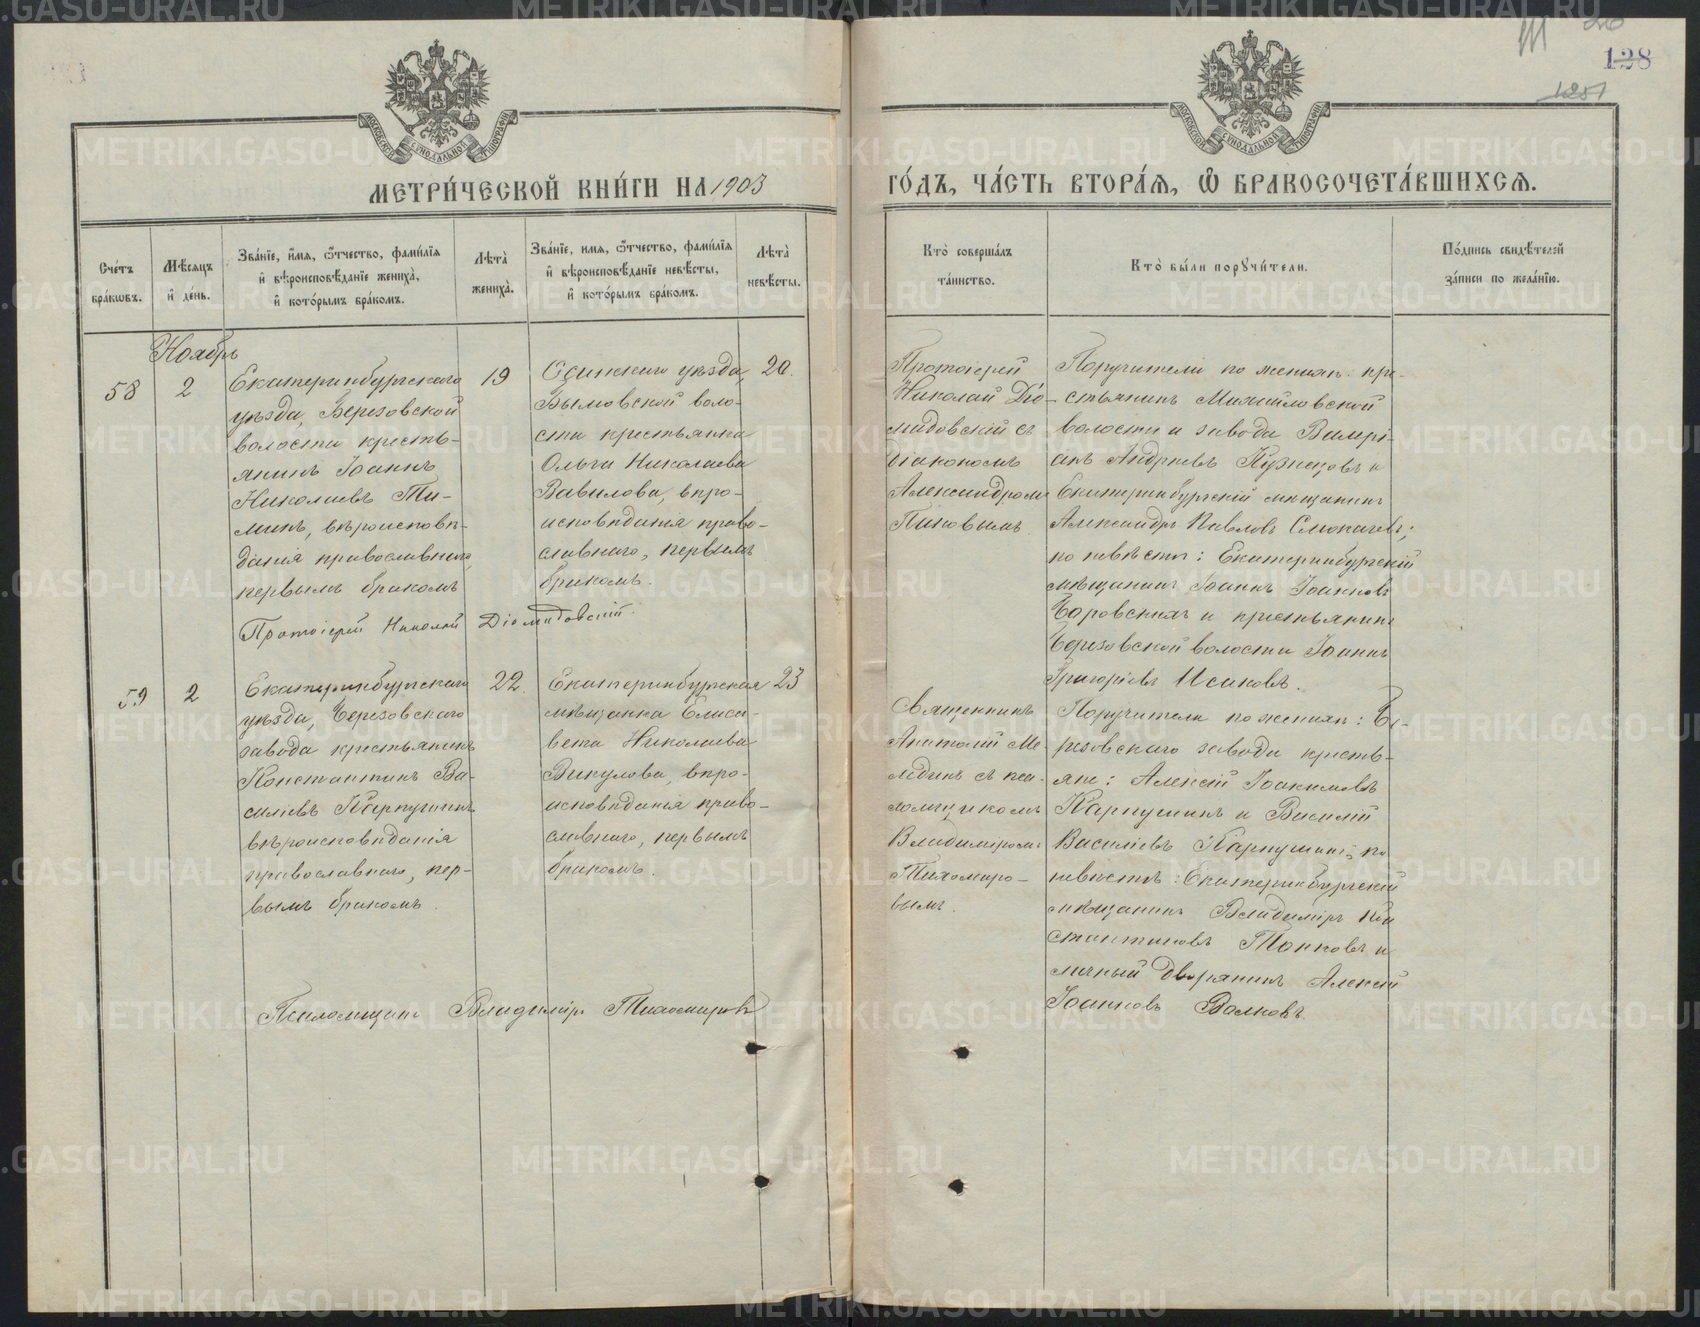 128
1251
МЕТРИ́ЧЕСКОЙ КНИ́ГИ НА 1903
ГО́ДЪ, ЧА́СТЬ ВТОРА́Я, Ѡ БРАКОСОЧЕТА́ВШИХСЯ.
Сче́тъ бра́кѡвъ.
Мѣ́сяцъ и де́нь.
Зва́нїе, и́мя, ѻ́тчество, фами́лїя и вѣроисповѣ́данїе жениха̀, и кото́рымъ бра́комъ.
Лѣта̀ жениха̀.
Зва́нїе, и́мя, ѻ́тчество, фами́лїя и вѣроисповѣ́данїе невѣ́сты, и кото́рымъ бра́комъ.
Лѣта̀ невѣ́сты.
Кто̀ соверша́лъ та́инство.
Кто̀ бы́ли порꙋчи́тели.
По́дпись свидѣ́телей за́писи по жела́нїю.
Ноябрь
58
2
Екатеринбургскаго
уѣзда, Березовской
волости кресть-
янинъ Іоаннъ
Николаевъ Ти-
минъ, вѣроисповѣ-
данія православнаго,
первымъ бракомъ
19
Осинскаго уѣзда,
Вымовской воло-
сти крестьянка
Ольга Николаева
Вавилова, вѣро-
исповѣданія право-
славнаго, первымъ
бракомъ.
20.
Протоіерей Николай Діомидовскій.
Протоіерей
Николай Діо-
мидовскій съ
діакономъ
Александромъ
Поручители по женихѣ: кре-
стьянинъ Михайловской
волости и завода Валері-
анъ Андреевъ Кузнецовъ и
Екатеринбургскій мѣщанинъ
Александръ Павловъ
по невѣстѣ: Екатеринбургскій
мѣщанинъ Іоаннъ Іоанновъ
и крестьянинъ
Березовской волости Іоаннъ
Григорьевъ Исаковъ.
59
2
Екатеринбургскаго
уѣзда, Березовскаго
завода крестьянинъ
Константинъ Ва-
сильевъ Карпушинъ
вѣроисповѣданія
православнаго, пер-
вымъ бракомъ.
22.
Екатеринбургская
мѣщанка Елиса-
вета Николаева
Викулова, вѣро-
исповѣданія право-
славнаго, первымъ
бракомъ.
23
Псаломщикъ Владиміръ Тихомировъ
Священникъ
Анатолій Ме-
лединъ съ пса-
ломщикомъ
Владиміромъ
Тихомиро-
вымъ.
Поручители по женихѣ: Бе-
резовскаго завода кресть-
яне: Алексій Іоакимовъ
Карпушинъ и Василій
Васильевъ Карпушинъ; по
невѣстѣ: Екатеринбургскій
мѣщанинъ Владиміръ Кон
стантиновъ Топковъ и
личный дворянинъ Алексій
Іоанновъ Волковъ.
METRIKI.GASO-URAL.RU